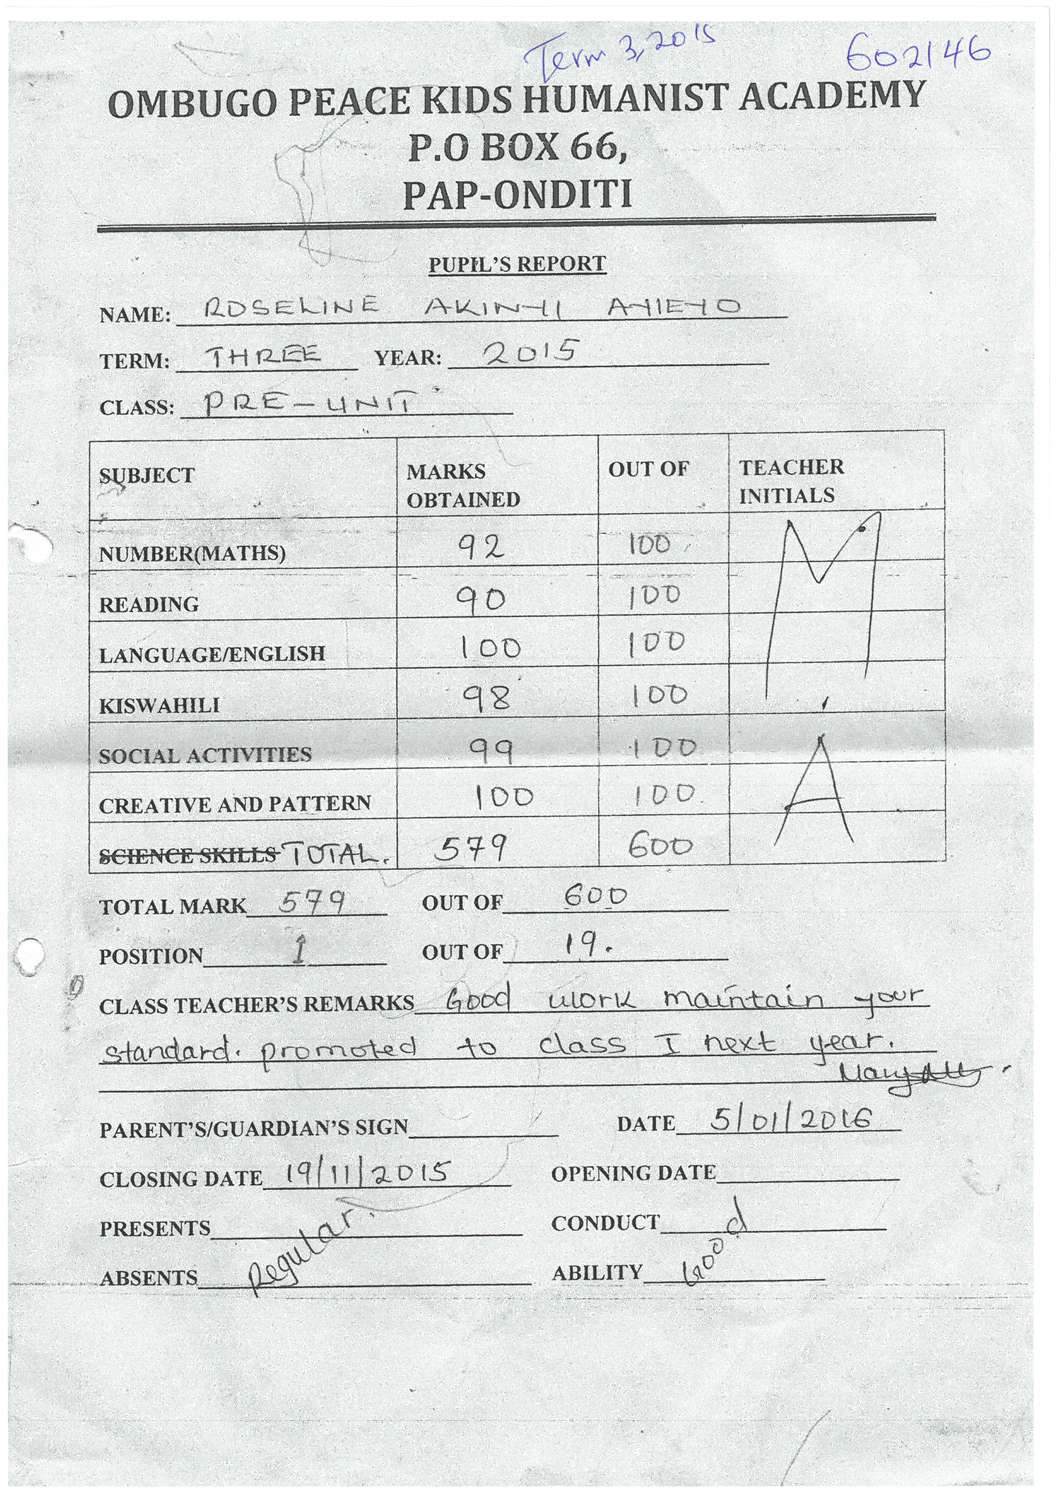 Term 3, 2015 602146
OMBUGO PEACE KIDS HUMANIST ACADEMY
P.O BOX 66,
PAP-ONDITI
PUPIL'S REPORT
NAME: ROSELINE AKINYI AYIEYO
TERM: THREE YEAR: 2015
CLASS: PRE-UNIT
SUBJECT MARKS OBTAINED OUT OF TEACHER INITIALS
NUMBER(MATHS) 92 100
READING 90 100
LANGUAGE/ENGLISH 100 100
KISWAHILI 98 100
SOCIAL ACTIVITIES 99 100
CREATIVE AND PATTERN 100 100
SCIENCE SKILLS TOTAL. 579 600
M.A
TOTAL MARK 579 OUT OF 600
POSITION 1 OUT OF 19.
CLASS TEACHER'S REMARKS Good work maintain your
standard. promoted to class I next year.
PARENT'S/GUARDIAN'S SIGN DATE 5/01/2016
CLOSING DATE 19/11/2015 OPENING DATE
PRESENTS CONDUCT
ABSENTS Regular. ABILITY Good